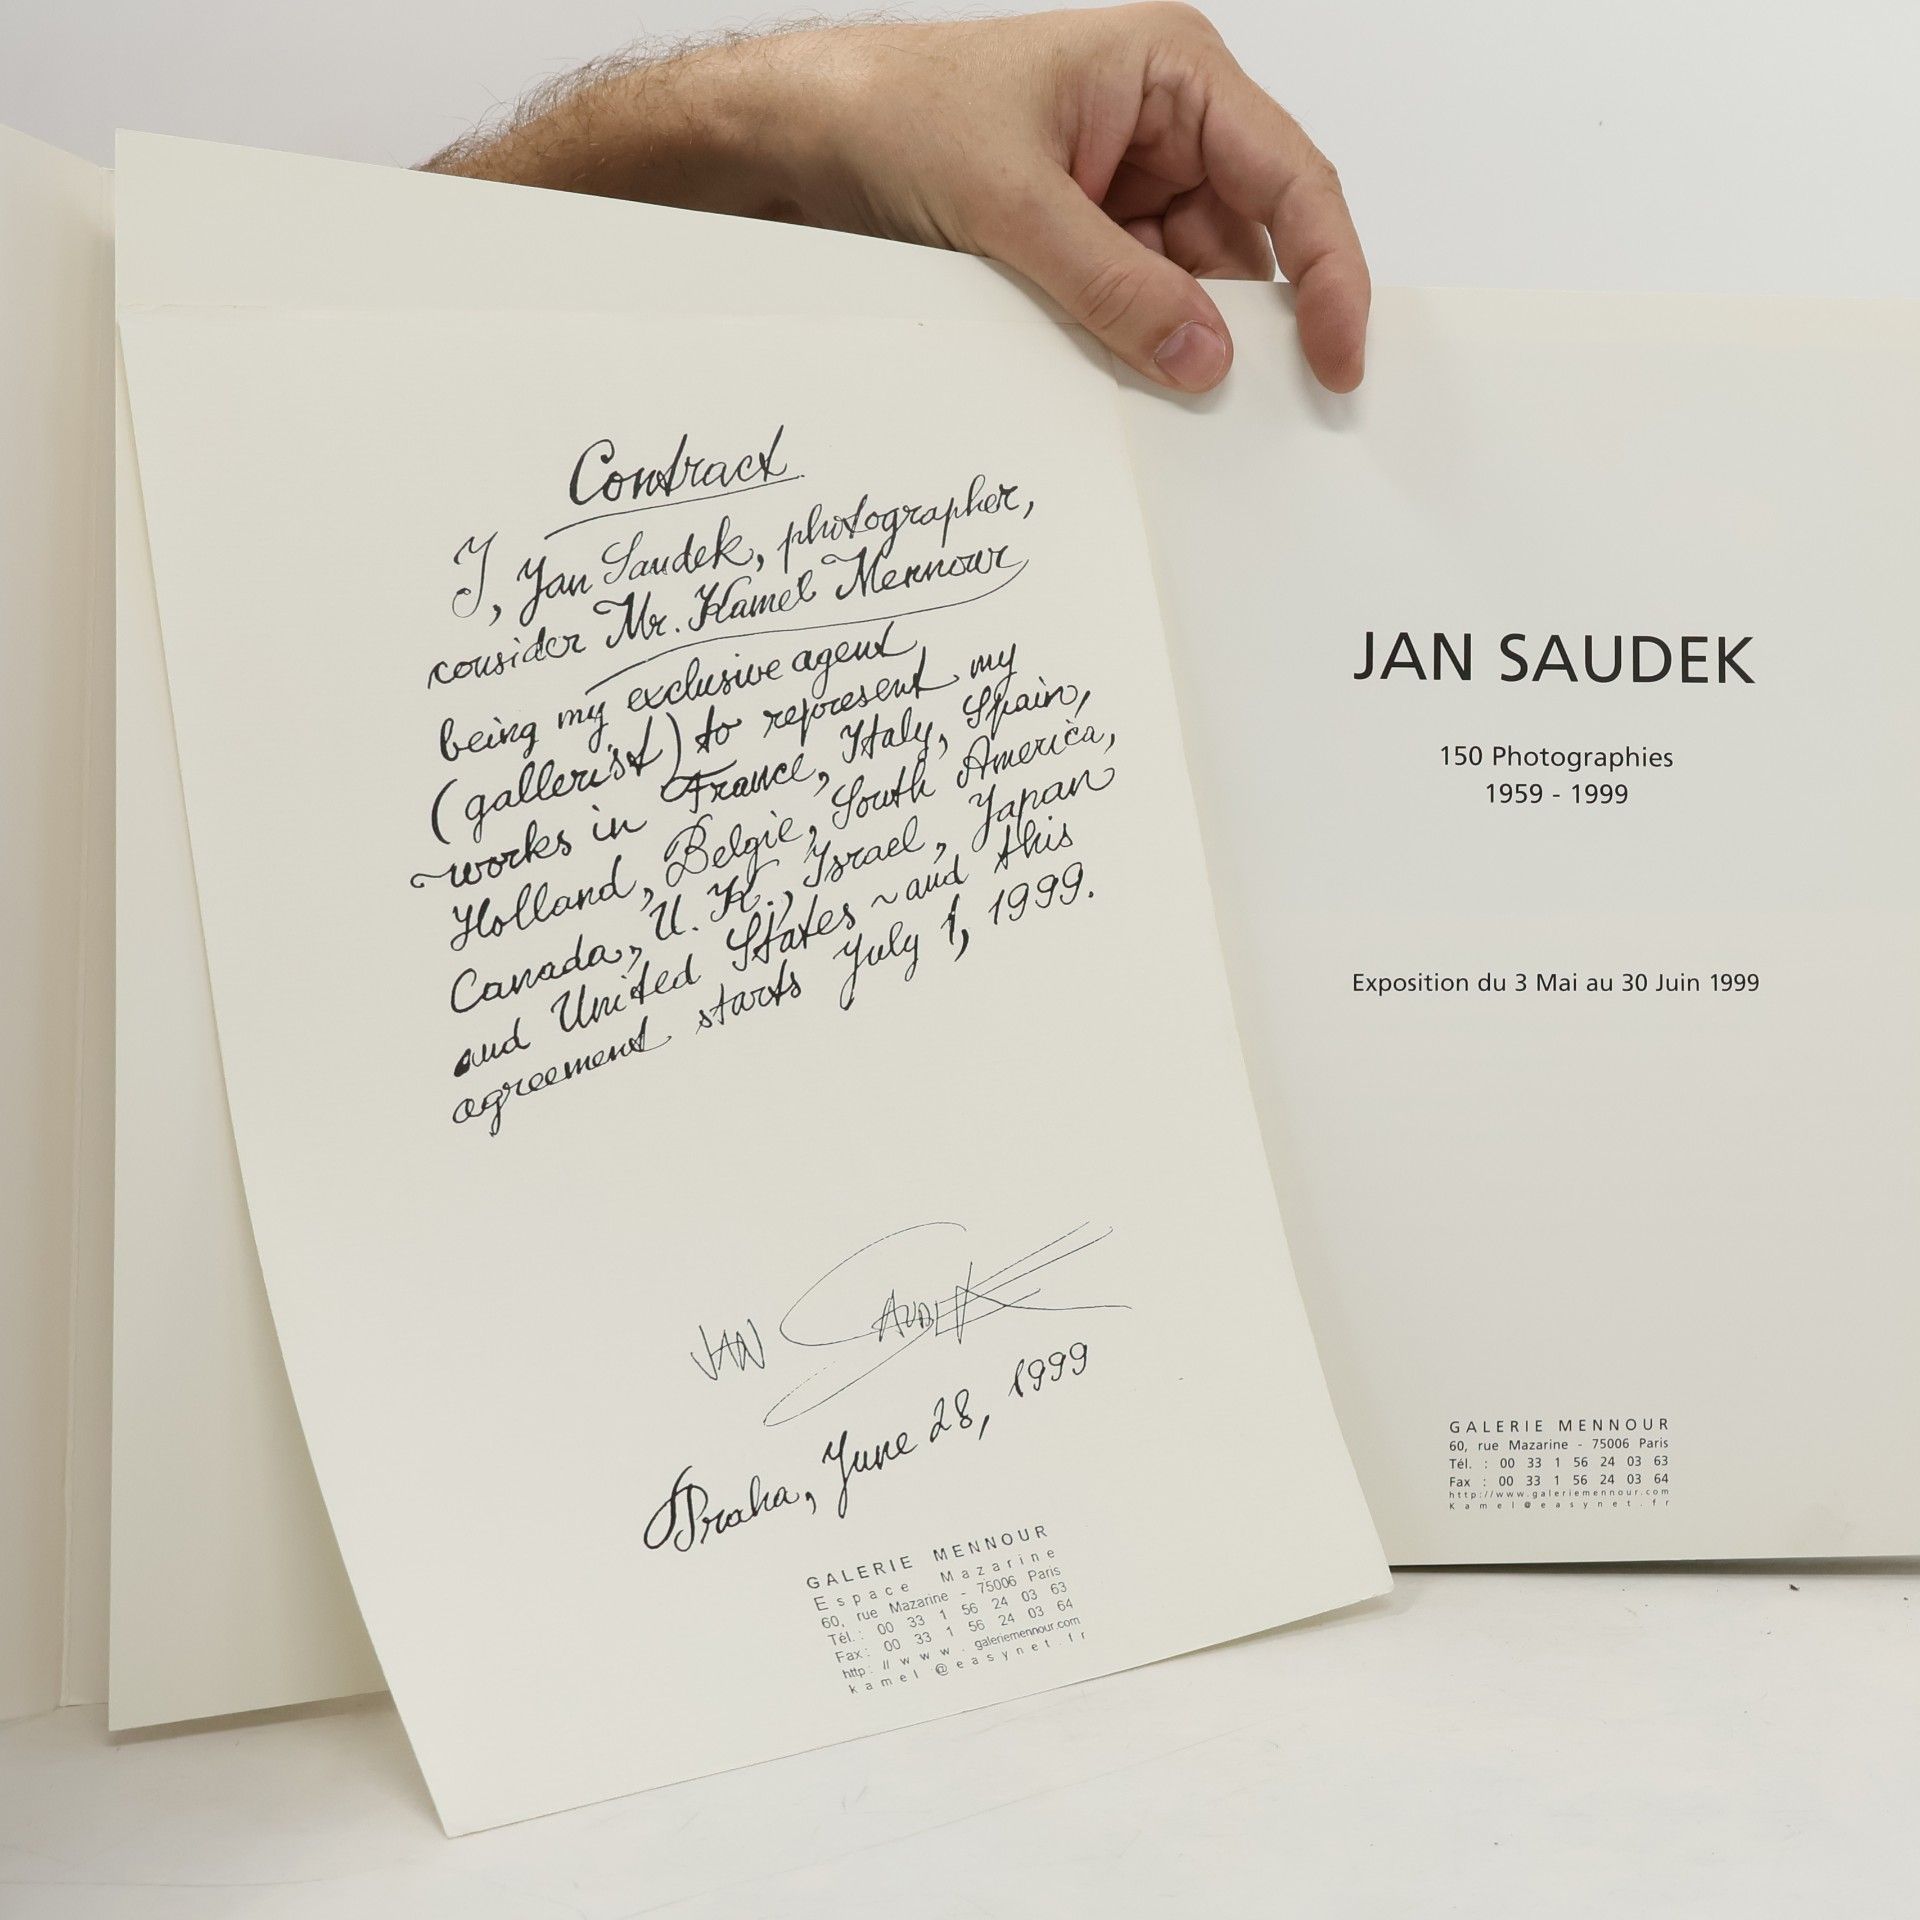 Contract
I, Jan Saudek, photographer,
consider Mr. Kamel Mennour
being my exclusive agent
(gallerist) to represent my
works in France, Italy, Spain,
Holland, Belgie, South America,
Canada, U. K., Israel, Japan
and United States ~ and this
agreement starts July 1, 1999.
JAN SAUDEK
Praha, June 28, 1999
GALERIE MENNOUR
Espace Mazarine
60, rue Mazarine - 75006 Paris
Tél. : 00 33 1 56 24 03 63
Fax : 00 33 1 56 24 03 64
http://www.galeriemennour.com
kamel@easynet.fr
JAN SAUDEK
150 Photographies
1959 - 1999
Exposition du 3 Mai au 30 Juin 1999
GALERIE MENNOUR
60, rue Mazarine - 75006 Paris
Tél. : 00 33 1 56 24 03 63
Fax : 00 33 1 56 24 03 64
http://www.galeriemennour.com
Kamel@easynet.fr